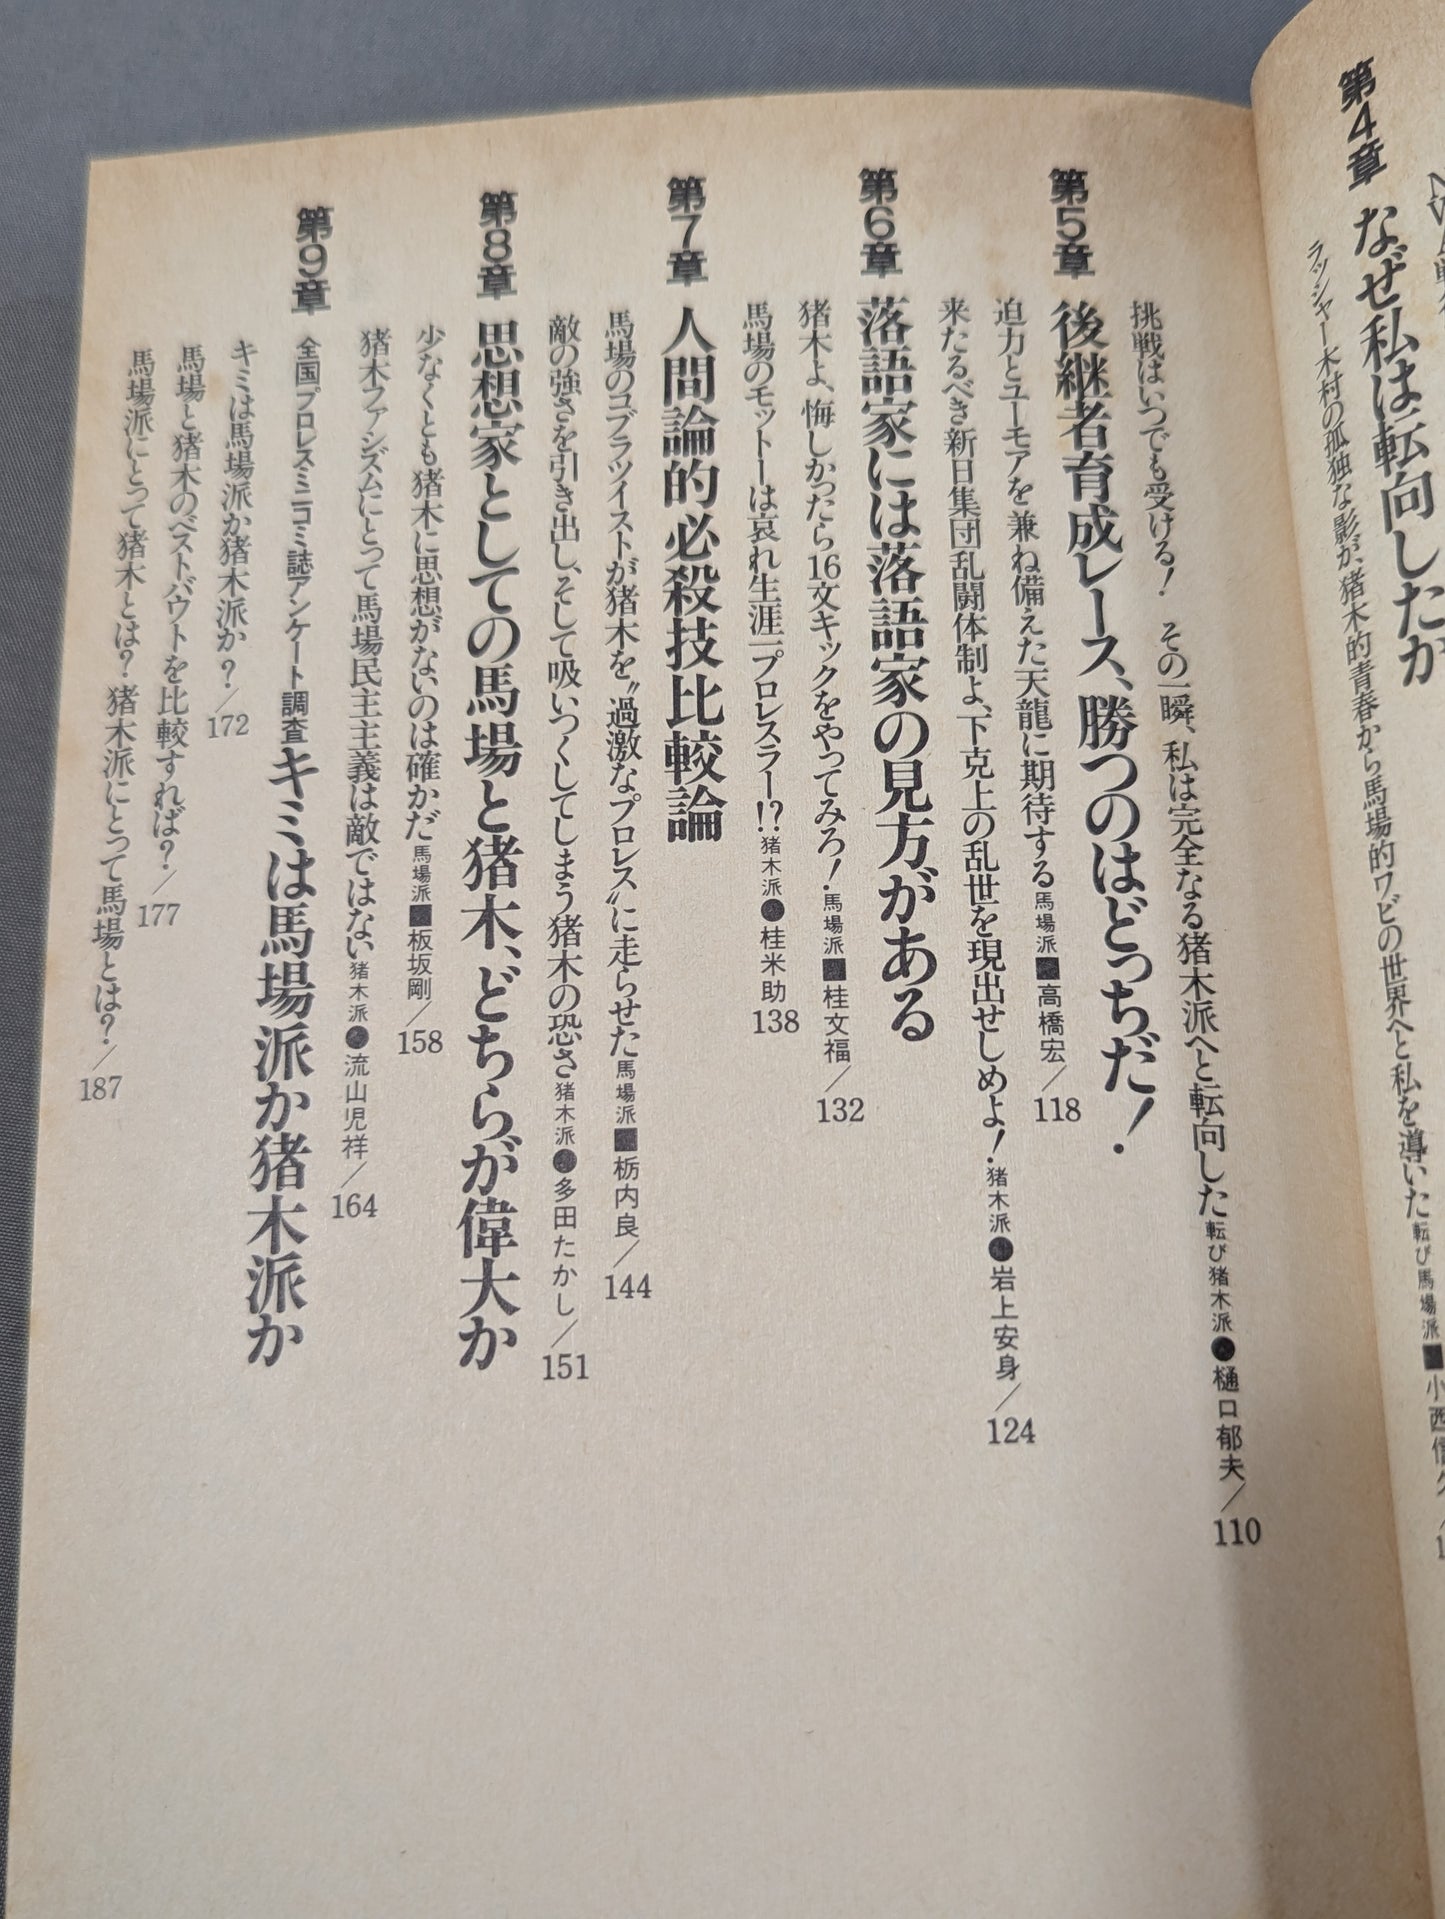 第4章 なぜ私は転向したか
ラッシャー木村の孤独な影が、猪木的青春から馬場的ワビの世界へと私を導いた 転び馬場派■小西
挑戦はいつでも受ける! その一瞬、私は完全なる猪木派へと転向した 転び猪木派●樋口郁夫/110
第5章 後継者育成レース、勝つのはどっちだ!
迫力とユーモアを兼ね備えた天龍に期待する 馬場派■高橋宏/118
来たるべき新日集団乱闘体制よ、下克上の乱世を現出せしめよ! 猪木派●岩上安身/124
第6章 落語家には落語家の見方がある
猪木よ、悔しかったら16文キックをやってみろ! 馬場派■桂文福/132
馬場のモットーは哀れ生涯一プロレスラー!? 猪木派●桂米助 138
第7章 人間論的必殺技比較論
馬場のコブラツイストが猪木を〝過激なプロレス〟に走らせた 馬場派■栃内良/144
敵の強さを引き出し、そして吸いつくしてしまう猪木の恐さ 猪木派●多田たかし/151
第8章 思想家としての馬場と猪木、どちらが偉大か
少なくとも猪木に思想がないのは確かだ 馬場派■板坂剛/158
猪木ファシズムにとって馬場民主主義は敵ではない 猪木派●流山児祥/164
第9章 全国プロレスミニコミ誌アンケート調査 キミは馬場派か猪木派か
キミは馬場派か猪木派か?/172
馬場と猪木のベストバウトを比較すれば?/177
馬場派にとって猪木とは? 猪木派にとって馬場とは?/187